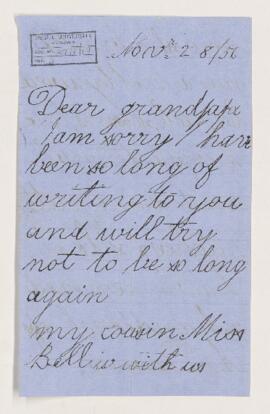 Nov. 28/56
Dear grandpapa
I am sorry I have
been so long of
writing to you
and will try
not to be so long
again
my cousin Miss
Bell is with us